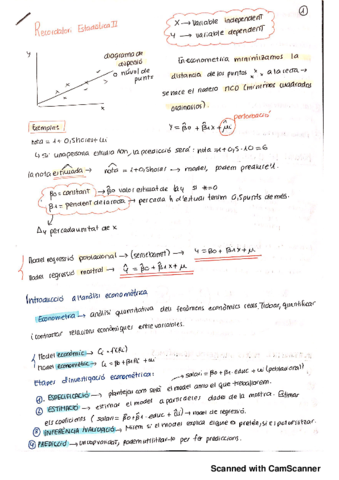 Recordatori Estadística II
1
X → Variable independent
Y → variable dependent
y
diagrama de
dispersió
o núvol de
punts
x
En econometria minimitzarem la
distància de los puntos, x, a la recta →
service el mètode MCO (mínimos cuadrados
ordinarios).
perturbació
Y = β0 + β1x + μ
Exemples
nota = 1 + 0,5hores + μ
si una persona estudia 10h, la predicció serà: nota = 1 + 0,5·10 = 6
la nota estimada → nota = 1 + 0,5hores → model, podem predir el
β0 = constant → β0 valor estimat de la y si x = 0
β1 = pendent de la recta → per cada h d'estudi tenim 0,5 punts de més.
Δy per cada unitat de x
Model regressió poblacional → (sencerament) → Y = β0 + β1x + μ
Model regressió mostral → Ŷ = β0 + β1x + μ
Introducció a l'anàlisi economètrica
Econometria → anàlisi quantitativa dels fenòmens econòmics reals. Trobar, quantificar
i contrastar relacions econòmiques entre variables.
Model econòmic → C = f(R)
Model economètric → C = β0 + β1R + u
Etapes d'investigació economètrica:
salari = β0 + β1·educ + u (poblacional)
① ESPECIFICACIÓ → plantejar com serà el model amb el que treballarem.
② ESTIMACIÓ → estimar el model a partir de les dades de la mostra. Estimar
els coeficients (salari = β0 + β1·educ + û) → model de regressió.
③ INFERÈNCIA I VALIDACIÓ →
④ PREDICCIÓ → un cop validat, podem utilitzar-lo per fer prediccions.
Scanned with CamScanner